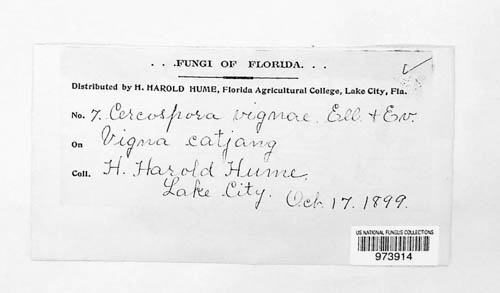 . . .FUNGI OF FLORIDA. . .
Distributed by H. HAROLD HUME, Florida Agricultural College, Lake City, Fla.
No. 7. Cercospora vignae. Ell. + Ev.
On Vigna catjang
Coll. H. Harold Hume.
Lake City. Oct. 17. 1899.
US NATIONAL FUNGUS COLLECTIONS
973914